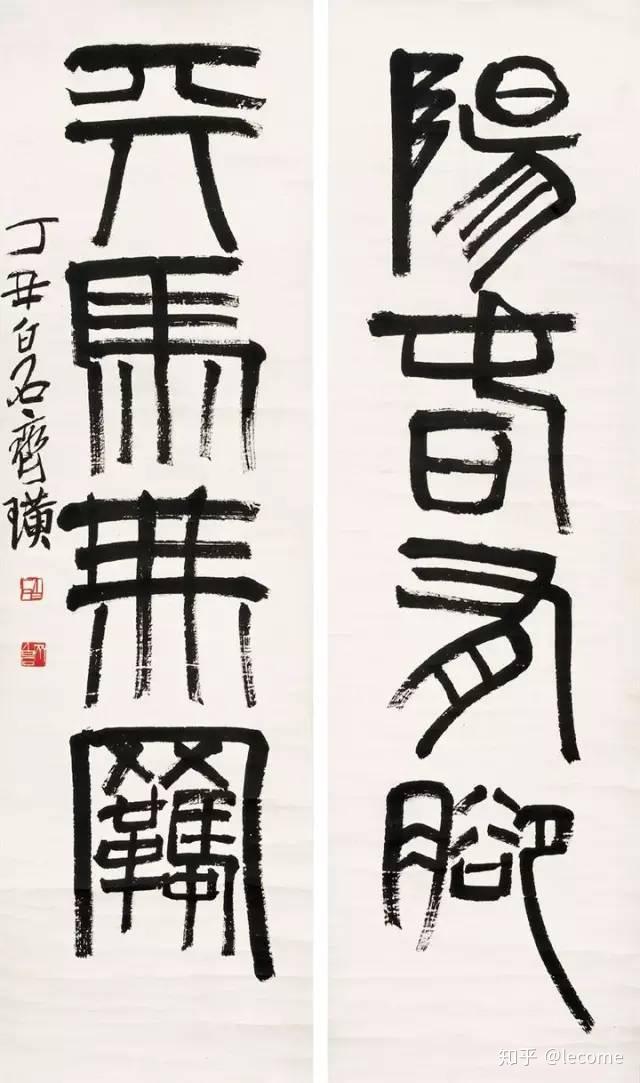 陽春有腳
天馬無羈
丁丑白石齊璜
知乎 @lecome